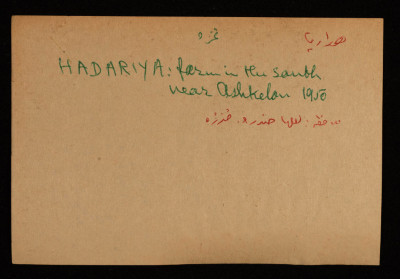 هداريا غزه
HADARIYA: farm in the south
near Ashkelon 1950